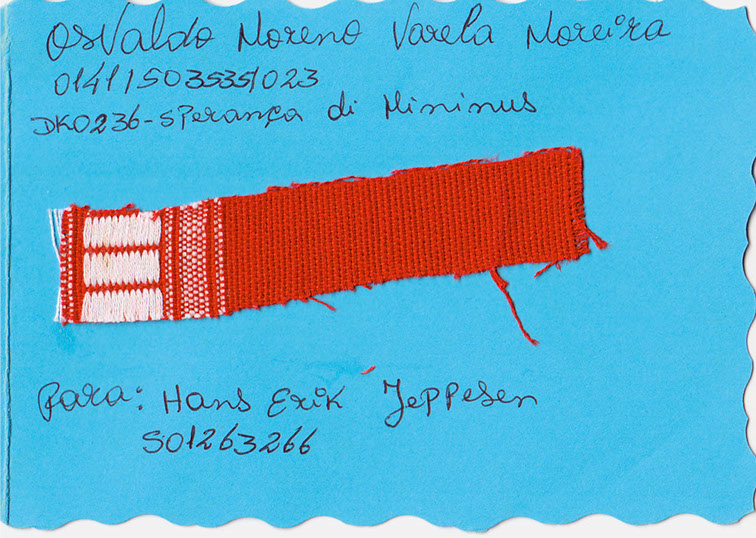 Osvaldo Moreno Varela Moreira
0141/5035351023
DK0236-Sperança di Mininus
Para: Hans Erik Jeppesen
S01263266